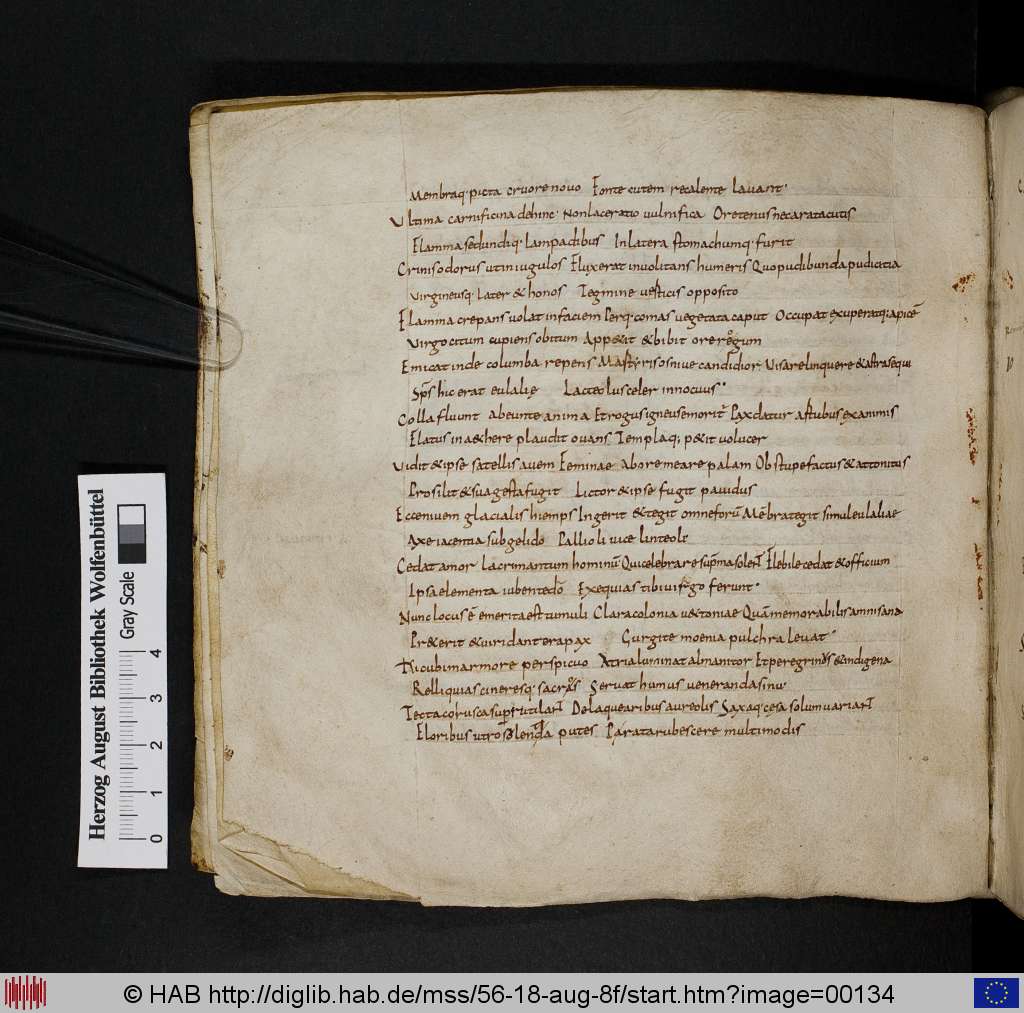 Membraq· picta cruore novo Fonte cutem recalente lavant·
Ultima carnificina dehinc· Non laceratio vulnifica Oretenus nec arata cutis
Flamma sed undiq· lampadibus In latera stomachumq· furit
Crinis odorus ut in iugulos Fluxerat involitans humeris Quo pudibunda pudicitia
Virgineusq· later & honos Tegmine verticis opposito
Flamma crepans volat in faciem Perq· comas vegetata caput Occupat exuperatq; apicē
Virgo citum cupiens obitum App&it & bibit ore rogum
Emicat inde columba repens Martyris os nive candidior Visa relinquere & astra sequi
Sp̄s hic erat eulalię Lacteolus celer innocuus·
Colla fluunt abeunte anima Et rogus igneus emorit̄ Pax datur artubus exanimis
Flatus in aethere plaudit ovans Templaq; p&it volucer
Vidit & ipse satellis avem Feminae ab ore meare palam Obstupefactus & attonitus
Prosilit & sua gesta fugit Lictor & ipse fugit pavidus
Ecce nivem glacialis hiemps Ingerit & tegit omne forū Mēbra tegit simul eulaliae
Axe iacentia sub gelido Pallioli vice linteoli
Cedat amor lacrimantum hominū Qui celebrare suprema solent Flebile cedat & officium
Ipsa elementa iubente dō Exequias tibi virgo ferunt·
Nunc locus ē emerita est tumuli Clara colonia vettoniae Quā memorabilis amnis ana
Pr&erit & viridante rapax Gurgite moenia pulchra levat·
Hic ubi marmore perspicuo Atria luminat alma nitor Et peregrinus & indigena
Relliquias cineresq· sacros Servat humus veneranda sinu
Tecta corusca super rutilant De laquearibus aureolis Saxaq· cęsa solum variant
Floribus ut rosulenta putes Parata rubescere multimodis
Herzog August Bibliothek Wolfenbüttel
Gray Scale
0 1 2 3 4
© HAB http://diglib.hab.de/mss/56-18-aug-8f/start.htm?image=00134